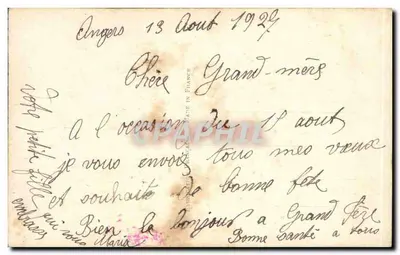 Angers 13 Aout 1927
Chère Grand-mère
A l occasion du 15 aout
je vous envoie tous mes vœux
et souhaite de bonne fete
Bien le bonjour a Grand Père
Bonne santé a tous
votre petite fille qui vous
embrasse
Maria
CPAPHIL
MADE IN FRANCE